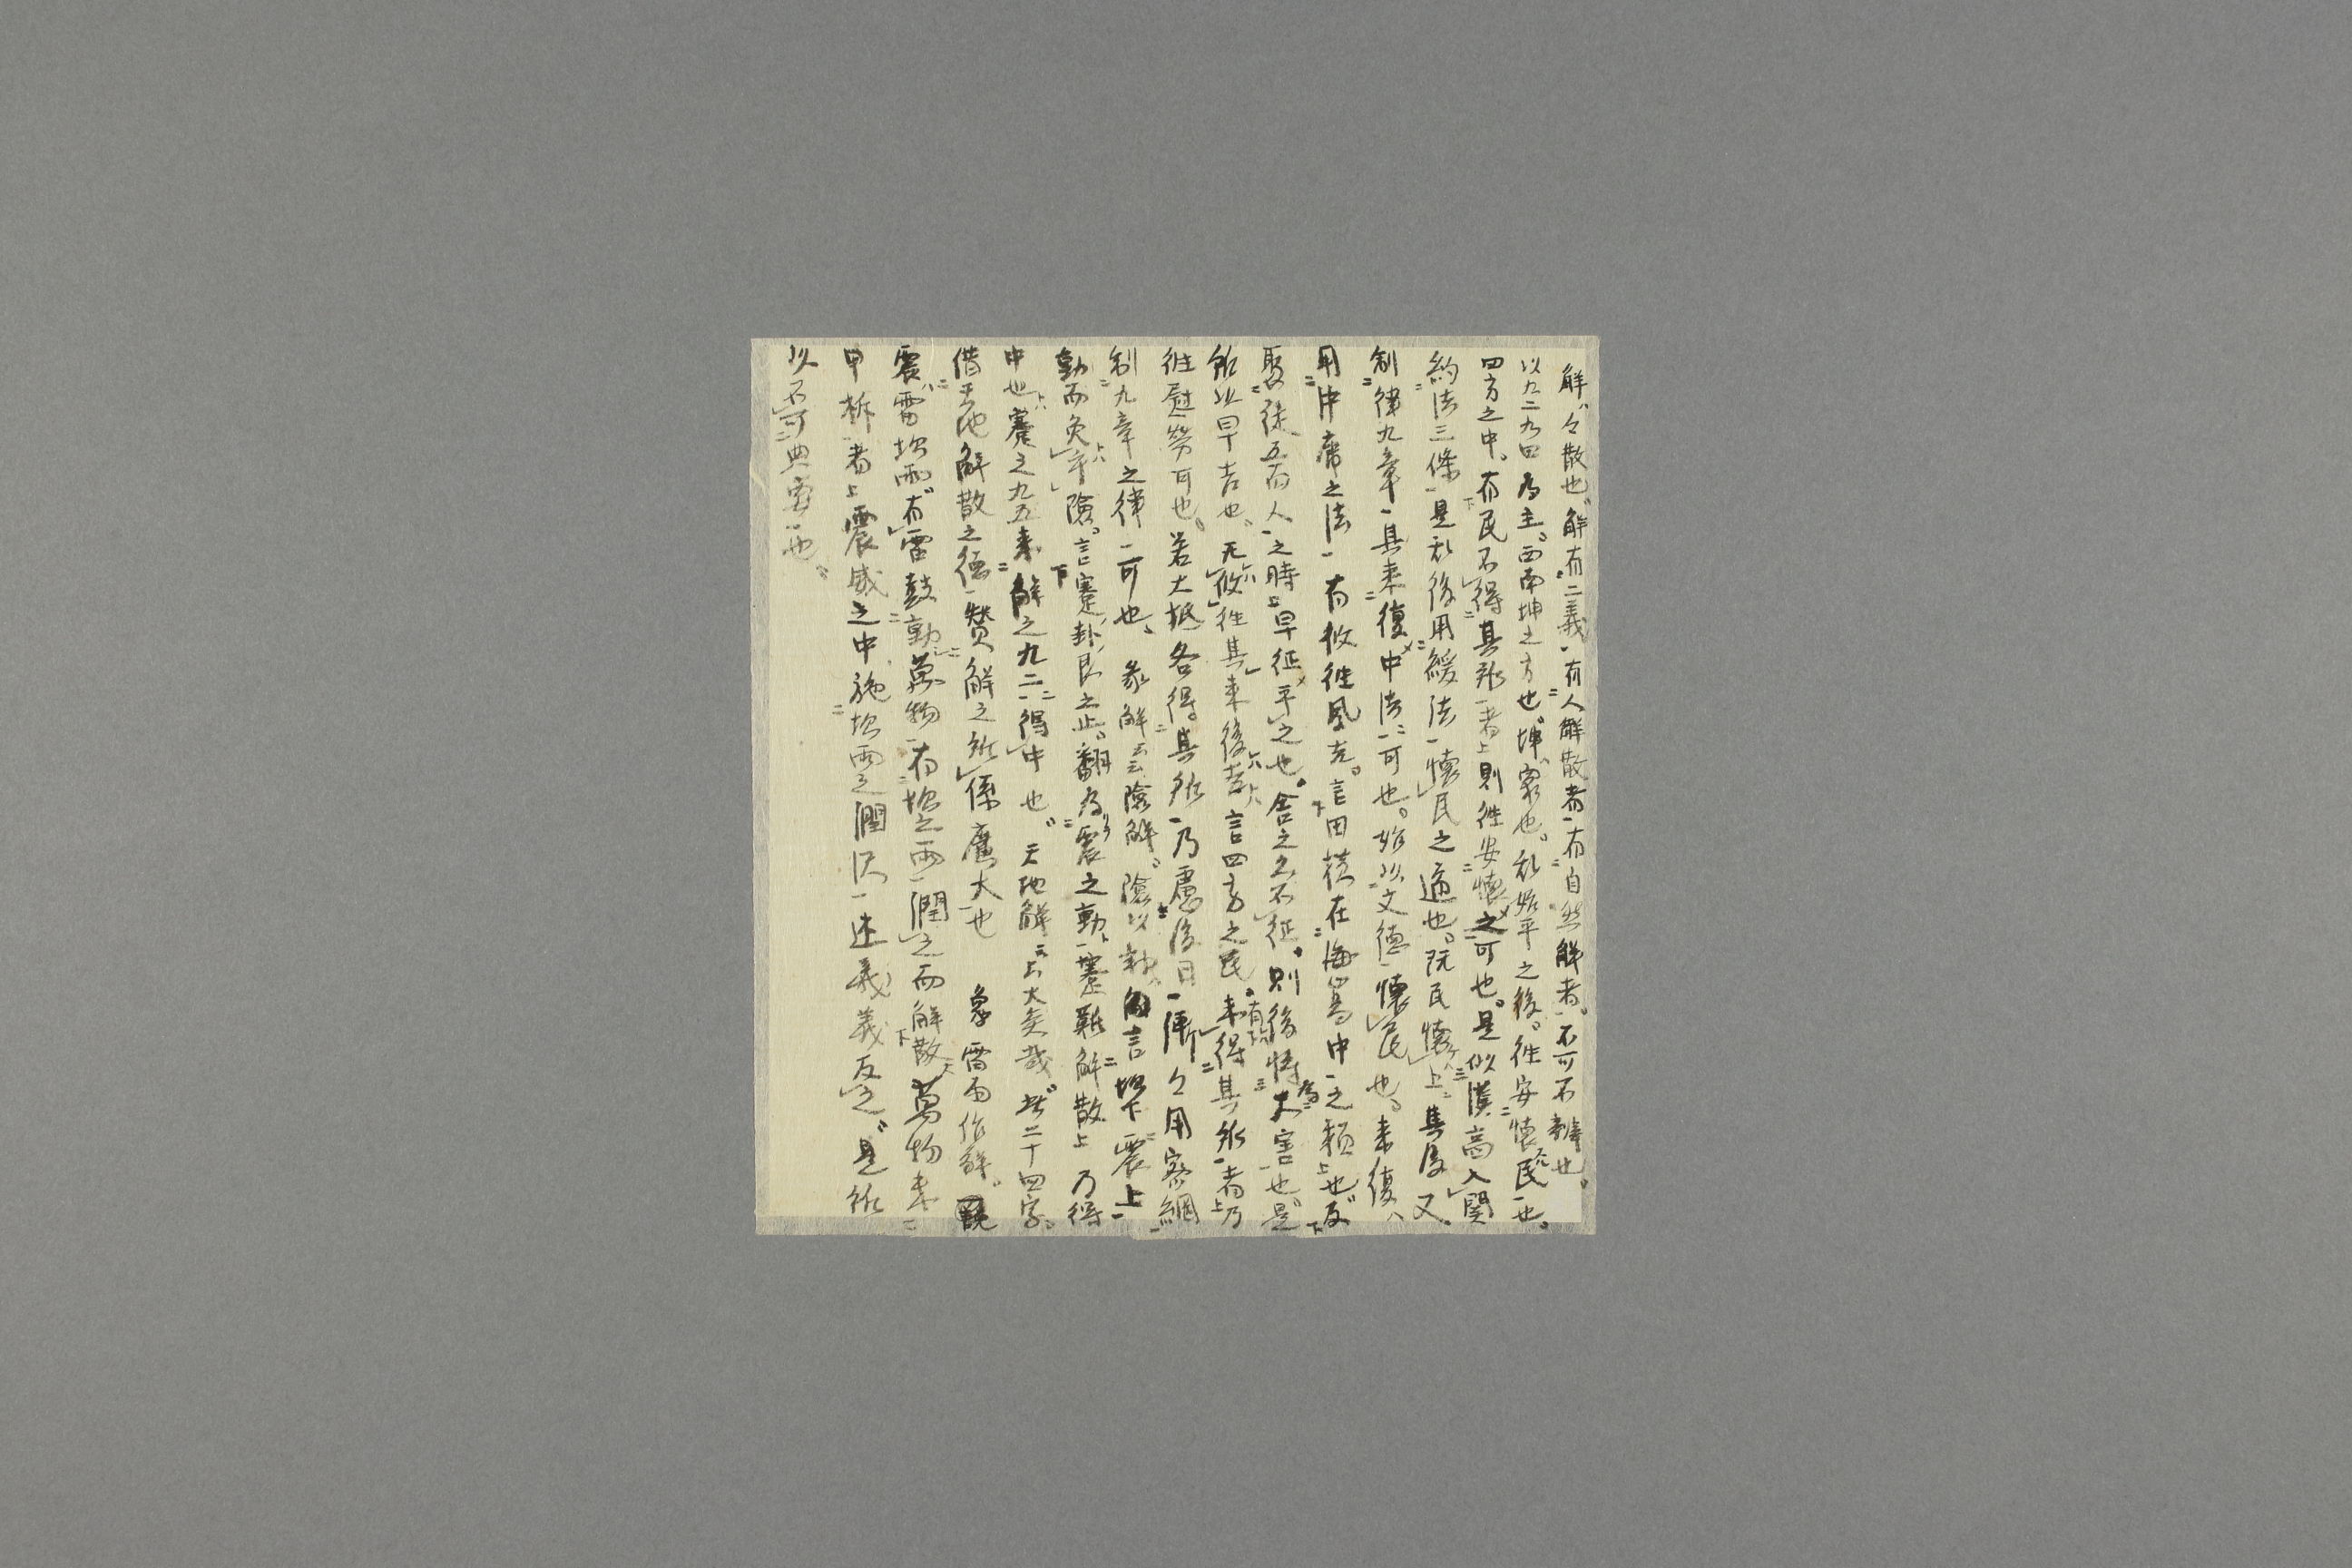 解、々散也。解有二義、有人解散者、有自然解者。不可不辨也。
以九二九四為主。西南坤之方也。坤、衆也。乱始平之後。往安懐民也。
四方之中。有民不得其所者、則往安懐之可也。是似漢高入関
約法三條。是乱後用緩法、懐民之道也。既民懐上、其後又
制律九章。其来復中法、可也。始以文徳懐民也。来復
用中庸之法。有攸往夙吉。言田横在海島中之類也。反
聚徒五百人之時、早征平之也。舎之不征。則後将為大害也。是
所以早吉也。无攸往其来復吉、言四方之民。未得其所者、乃
往慰労可也。若大抵各得其所、乃慮後日、漸々用密網
制九章之律可也。彖解云云險解。險以動。言坎下震上
動而免乎險。言蹇卦艮之止。翻為震之動、蹇難解散、乃得
中也。蹇之九五来解之九二、得中也。天地解云云大矣哉。此二十四字。
借天地解散之徳、賛解之所係廣大也 象雷雨作解。
震雷坎雨。有雷鼓動萬物、有坎之雨、潤之而解散萬物者
甲拆者、震威之中施坎雨之潤沢、述義義反之。是所
以不可典要也。